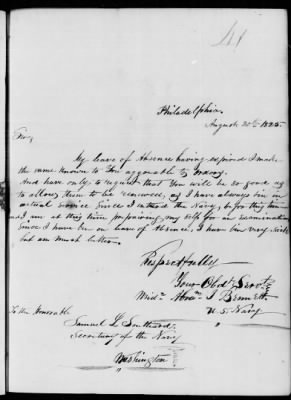 41
Philadelphia
August 20th 1825.
Sir,
My leave of Absence having expired I make
the same known to You aggreable to Orders.
And have only to request that You will be so good as
to allow them to be renewed, as I have always bin in
actual service Since I entered the Navy, before this time
and I am at this time prepairing my self for an examination
Since I have bin on leave of Absence, I have bin very sick
but am much better.
Respectfully
Your Obdt. Servt.
Midn. Abrm. J Bennett
U. S. Navy
To the Honorable
Samuel L Southard
Secretary of the Navy
Washington